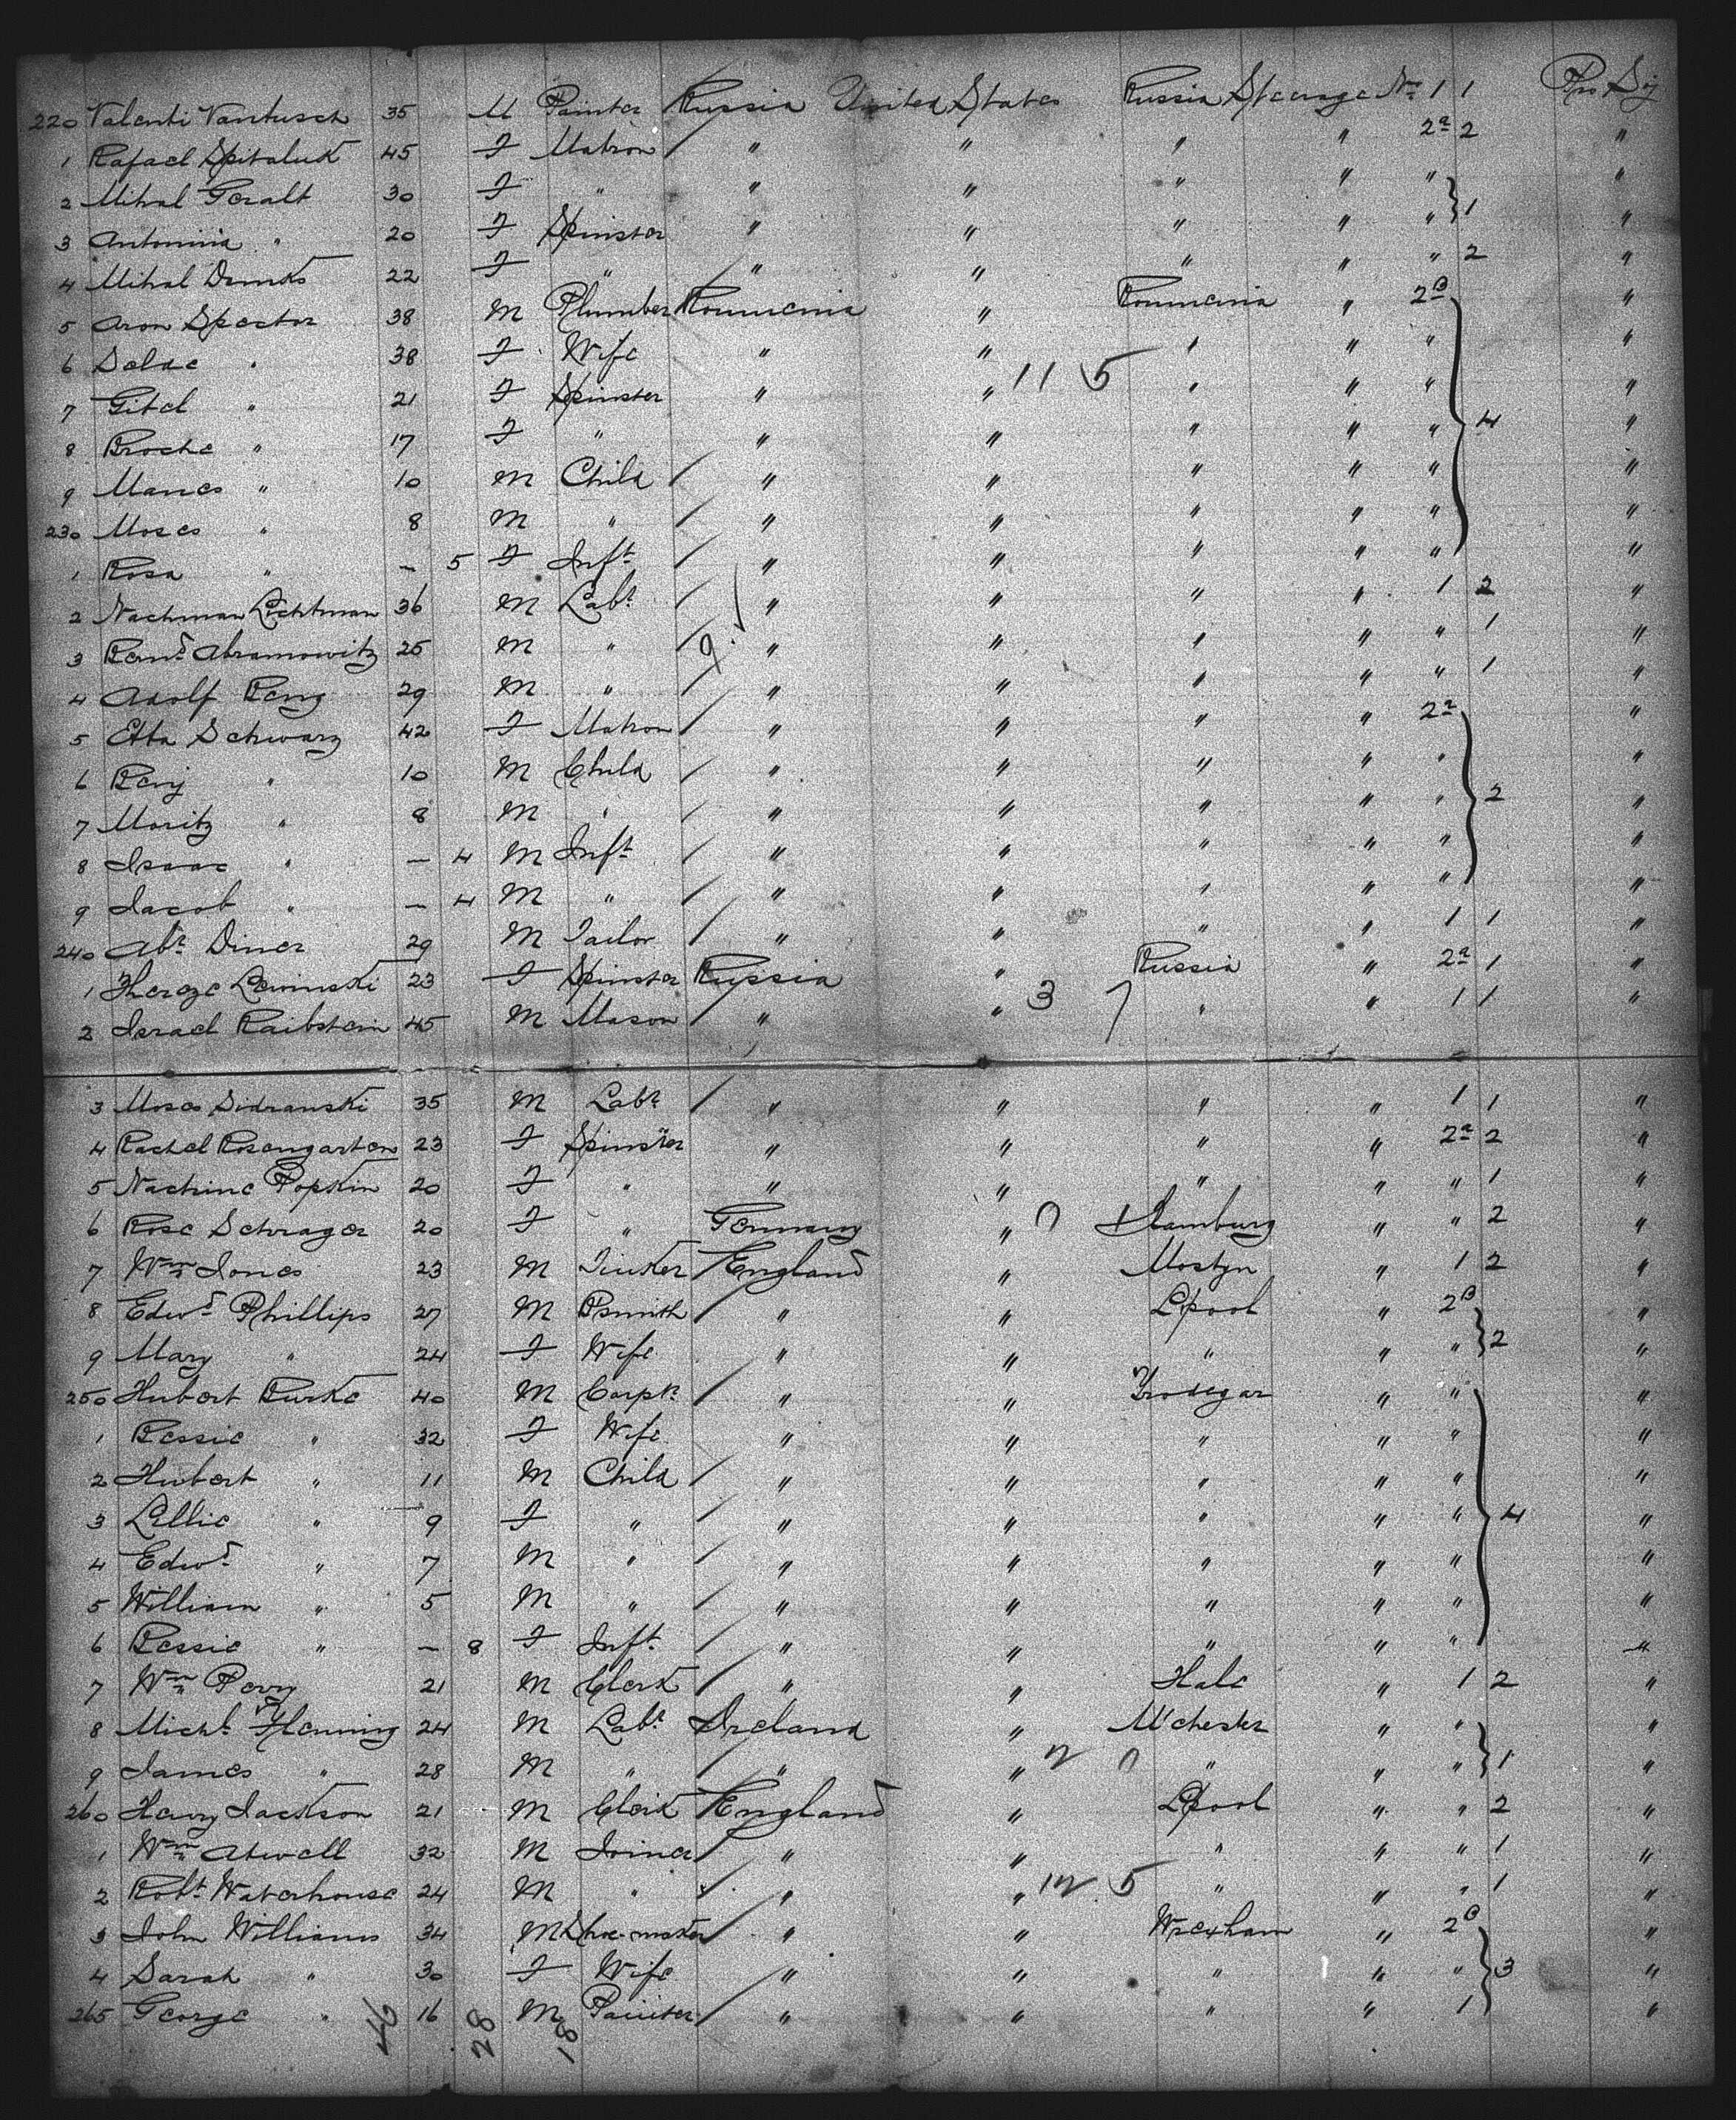 220 Valenti Vantusch 35 M Painter Russia United States Russia Steerage No 1 1 Pro Soj
1 Rafael Spitaluk 45 F Matron " " " " 2a 2 "
2 Mihal Geralt 30 F " " " " " " "
3 Antonina " 20 F Spinster " " " " " 1 "
4 Mihal 22 F " " " " " " 2 "
5 Aron Spector 38 M Plumber Roumenia " Roumenia " 2B "
6 " 38 F Wife " " " " " "
11 5
7 Gitel " 21 F Spinster " " " " " "
8 Broche " 17 F " " " " " " 4 "
9 Manes " 10 M Child " " " " " "
230 Moses " 8 M " " " " " " "
1 Rosa " – 5 F Inft " " " " " "
2 Nachman Lichtman 36 M Labr " " " " 1 2 "
3 Bernd Abramowitz 25 M " 9 " " " " " 1 "
4 Adolf 29 M " " " " " " 1 "
5 Etta Schwarz 42 F Matron " " " " 2a "
6 Benj " 10 M Child " " " " " "
7 Moritz " 8 M " " " " " " 2 "
8 Isaac " – 4 M Inft " " " " " "
9 Jacob " – 4 M " " " " " " "
240 Abr Diner 29 M Tailor " " " " 1 1 "
1 Lewinski 23 F Spinster Russia " Russia " 2a 1 "
2 Israel Raibstein 45 M Mason " " 3 7 " " 1 1 "
3 Moses Sidranski 35 M Labr " " " " 1 1 "
4 Rachel Rosengarten 23 F Spinster " " " " 2a 2 "
5 Nachine Popkin 20 F " " " " " " 1 "
6 Rose Schrager 20 F " Germany " 0 Hamburg " " 2 "
7 Wm Jones 23 M Tinker England " Mostyn " 1 2 "
8 Edwd Phillips 27 M Bsmith " " Lpool " 2B "
9 Mary " 24 F Wife " " " " " 2 "
250 Hubert Burke 40 M Carpr " " Tredegar " " "
1 Bessie " 32 F Wife " " " " " "
2 Hubert " 11 M Child " " " " " "
3 Lillie " 9 F " " " " " " 4 "
4 Edwd " 7 M " " " " " " "
5 William " 5 M " " " " " " "
6 Bessie " – 8 F Inft " " " " " "
7 Wm Perry 21 M Clerk " " Hale " 1 2 "
8 Michl Flenning 24 M Labr Ireland " M'chester " " "
9 James " 28 M " " " 2 0 " " " 1 "
260 Henry Jackson 21 M Clerk England " Lpool " " 2 "
1 Wm Atwell 32 M Joiner " " " " " 1 "
2 Robt Waterhouse 24 M " " " 12 5 " " " 1 "
3 John Williams 34 M Shoe-maker " " Wrexham " 2B "
4 Sarah " 30 F Wife " " " " " 3 "
265 George " 16 M Painter " " " " 1 "
46 28 18